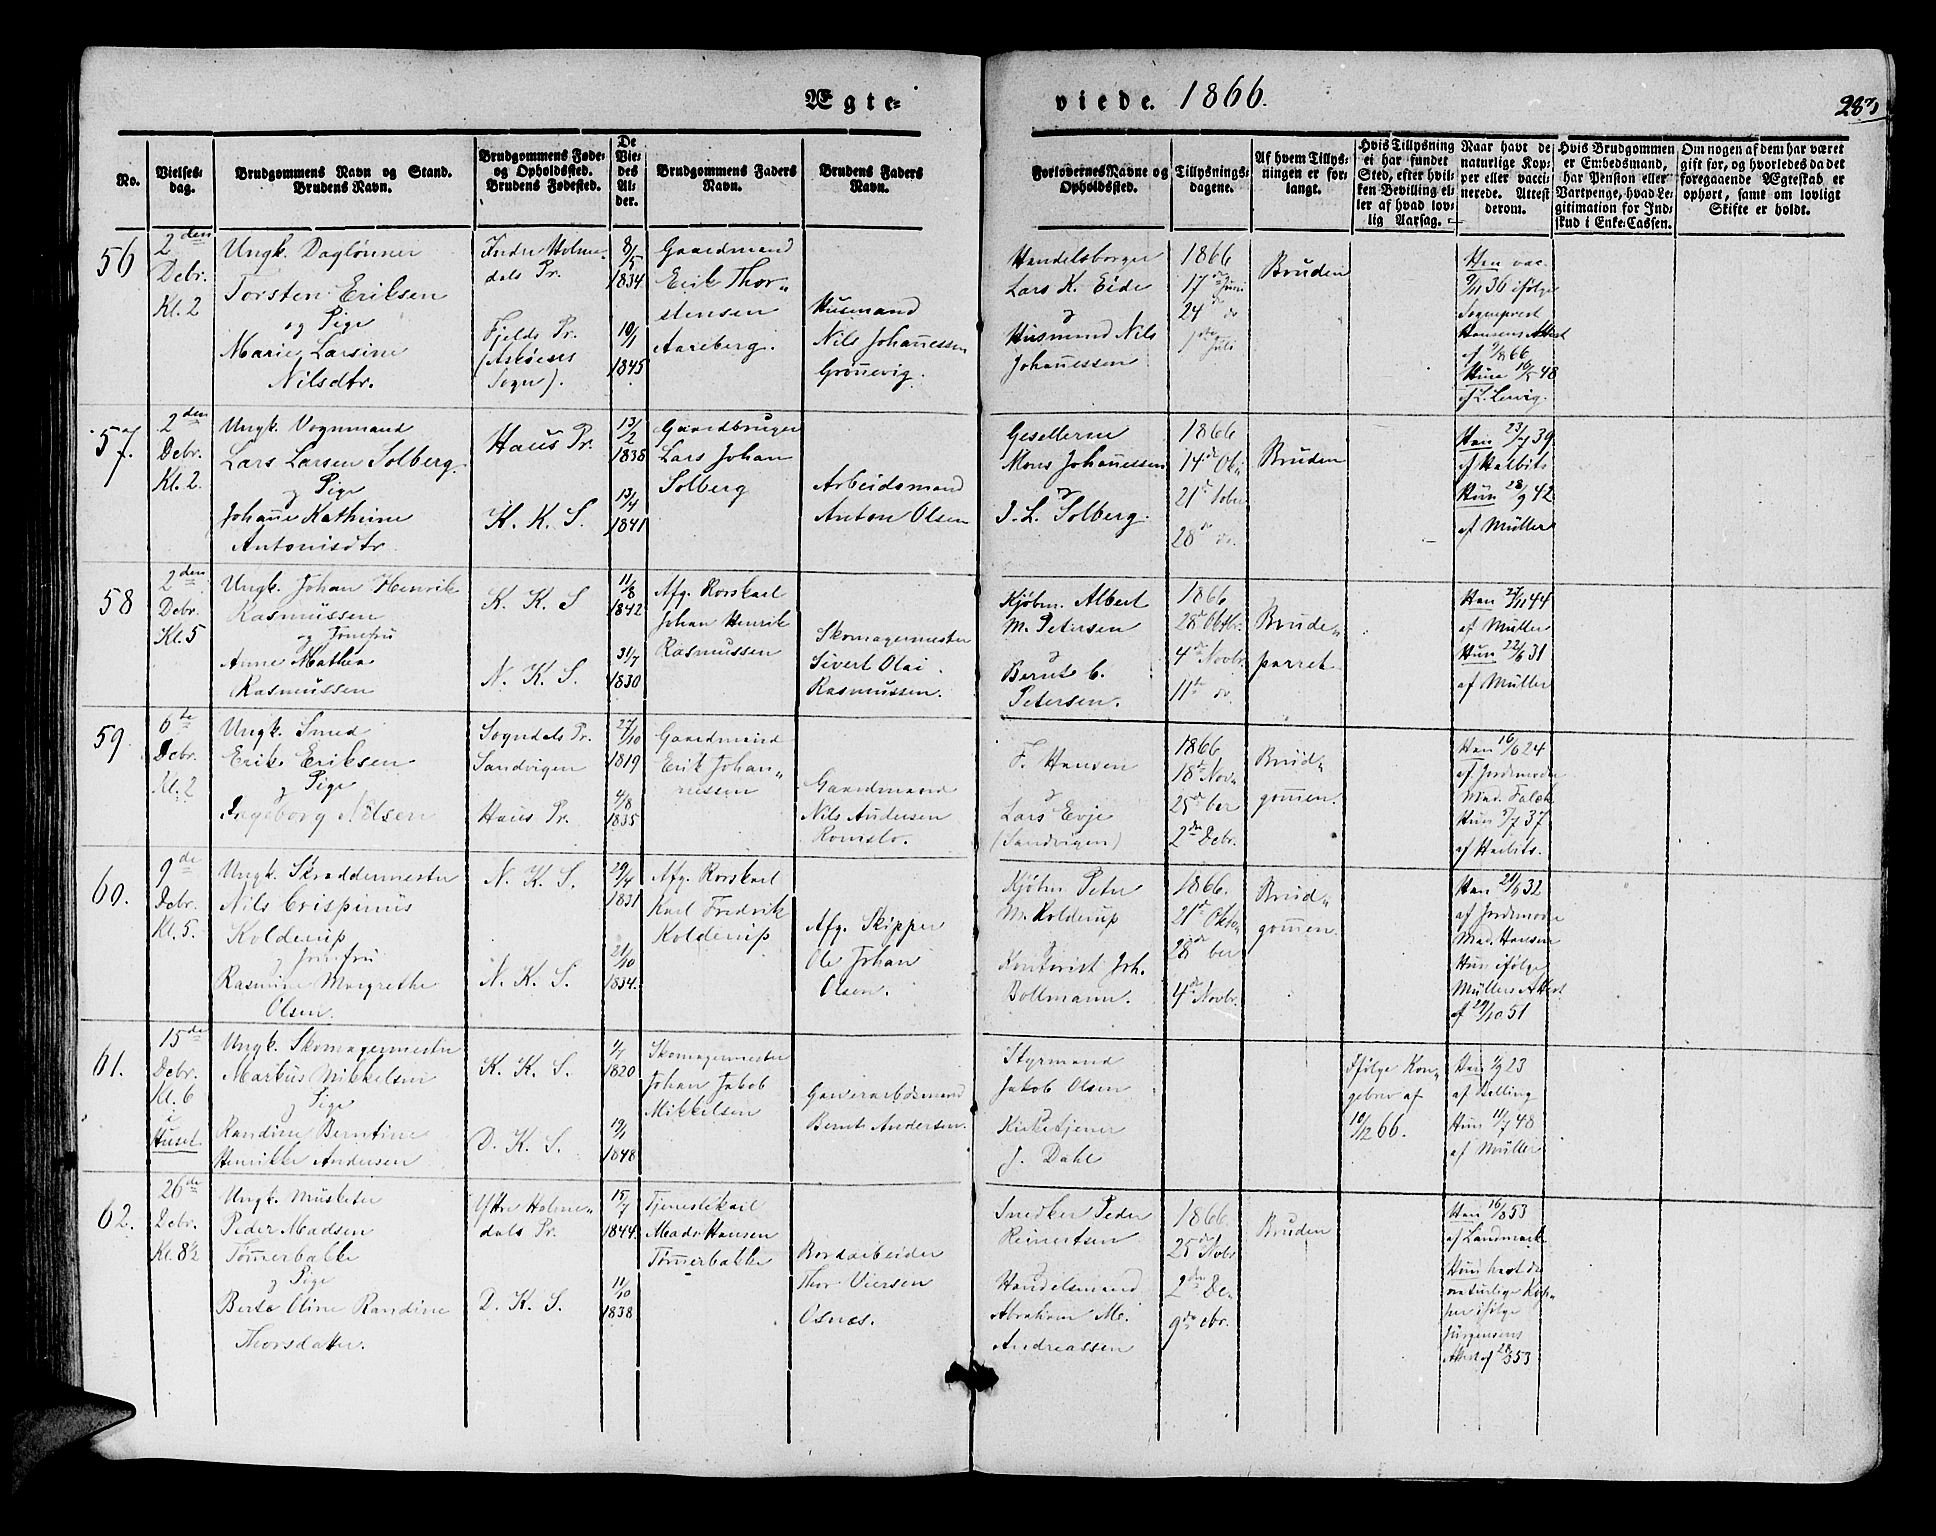 Ægte-
viede. 1866.
No.
Vielses-
dag.
Brudgommens Navn og Stand.
Brudens Navn.
Brudgommens Føde-
og Opholdssted.
Brudens Fødested.
De
Vie-
des
Al-
der.
Brudgommens Faders
Navn.
Brudens Faders
Navn.
Forlovernes Navne og
Opholdssted.
Tillysnings-
dagene.
Af hvem Tillys-
ningen er for-
langt.
Hvis Tillysning
ei har fundet
Sted, efter hvil-
ken Bevilling el-
ler af hvad lov-
lig Aarsag.
Naar havt de
naturlige Kop-
per eller vacci-
nerede. Attest
derom.
Hvis Brudgommen
er Embedsmand,
har Pension eller
Vartpenge, hvad Le-
gitimation for Ind-
skud i Enke-Cassen.
Om nogen af dem har været
gift for, og hvorledes da det
foregaaende Ægteskab er
ophørt, samt om lovligt
Skifte er holdt.
56
2den
Debr.
Kl. 2
Ungk. Daglønner
Torsten Eriksen
og Pige
Marie Larsine
Nilsdtr.
Indre Holme-
dals Pr.
Fjelds Pr.
(Askøens
Sogn).
8/5
1834
19/1
1845
Gaardmand
Erik Thor-
stensen
Aareberg.
Husmand
Nils Johannessen
Grønnevig.
Handelsborger
Lars K. Eide
og
Husmand Nils
Johannessen
1866
17de Juni
24de do
1ste Juli
Bruden
Han vac.
9/11 36 ifølge
Sognepræst
Hansens Attest
af 9/8 66
Hun 10/5 48
57.
2den
Debr.
Kl. 2.
Ungk. Vognmand
Lars Larsen Solberg.
og Pige
Johanne Kathrine
Antonisdtr.
Haus Pr.
K. K. S.
13/2
1838
13/4
1841
Gaardbruger
Lars Johan
Solberg
Arbeidsmand
Anton Olsen
Gesellerne
Mons Johannessen
og
J. L. Solberg.
1866
14de Ok-
21de tober
28de do.
Bruden
Han 23/7 39
af Harbits
Hun 28/9 42
af Müller
58
2den
Debr.
Kl. 5
Ungk. Johan Henrik
Rasmussen
og Jomfru
Anne Mathea
Rasmussen
K. K. S
N. K. S.
11/8
1842
31/7
1830
Afg. Rorskarl
Johan Henrik
Rasmussen
Skomagermester
Sivert Olai
Rasmussen.
Kjøbm. Albert
M. Petersen
og
Bernt C.
Petersen.
1866
28de Oktbr.
4de Novbr.
11te do
Brude-
parret
Han 27/11 44
af Müller
Hun 22/6 31
af Müller
59.
6te
Debr.
Kl. 2
Ungk. Smed
Erik Eriksen
og Pige
Ingeborg Nilsen
Sogndals Pr.
Sandvigen
Haus Pr.
27/10
1819
4/8
1835
Gaardmand
Erik Johan-
nessen
Gaardmand
Nils Andersen
Romslo.
F. Hansen
og
Lars Evje
(Sandvigen)
1866
18de Nov-
25de ber
2den Debr.
Brud-
gommen.
Han 16/6 24
af Jordemoder
Mad. Falck
Hun 5/7 37
af Harbits.
60.
9de
Debr.
Kl. 5.
Ungk. Skræddermester
Nils Crispinus
Kolderup
og Jomfru
Rasmine Margrethe
Olsen.
N. K. S.
N. K. S.
29/4
1831
21/10
1834.
Afg. Rorskarl
Karl Fredrik
Kolderup
Afg. Skipper
Ole Johan
Olsen.
Kjøbm Peter
M. Kolderup
og
Kontorist Joh.
Bollmann.
1866.
21de Okto-
28de ber
4de Novbr.
Brud-
gommen.
Han 21/6 32
af Jordemoder
Mad. Hansen
Hun ifølge
Müllers Attest
af 29/10 51
61.
15de
Debr.
Kl. 6
i
Huset
Ungk. Skomagermester
Markus Mikkelsen
og Pige
Randine Berntine
Henrikke Andersen
K. K. S.
D. K. S.
1/7
1820
19/1
1848
Skomagermester
Johan Jakob
Mikkelsen
Garverarbeidsmand
Bernt Andersen.
Styrmand
Jakob Olsen
og
Kirketjener
J. Dahl
Ifølge Kon-
gebrev af
10/12 66.
Han 1/9 23
af Belling
Hun 11/7 48
af Müller
62.
26de
Debr.
Kl. 8½
Ungk. Musketer
Peder Madsen
Tømmerbakke
og Pige
Berte Oline Randine
Thorsdatter.
Ytre Holme-
dals Pr.
D. K. S.
15/7
1844
11/10
1838
Tjenestekarl
Mads Hansen
Tømmerbakke
Bordarbeider
Thor Viersen
Osnæs.
Snedker Peder
Reinertsen
og
Handelsmand
Abraham M.
Andreassen
1866.
25de Novbr.
2den De-
9de cbr.
Bruden
Han 16/8 53
af Landmark
Hun havt de
naturlige Kop-
per ifølge
Jürgensens
Attest af 28/8 53